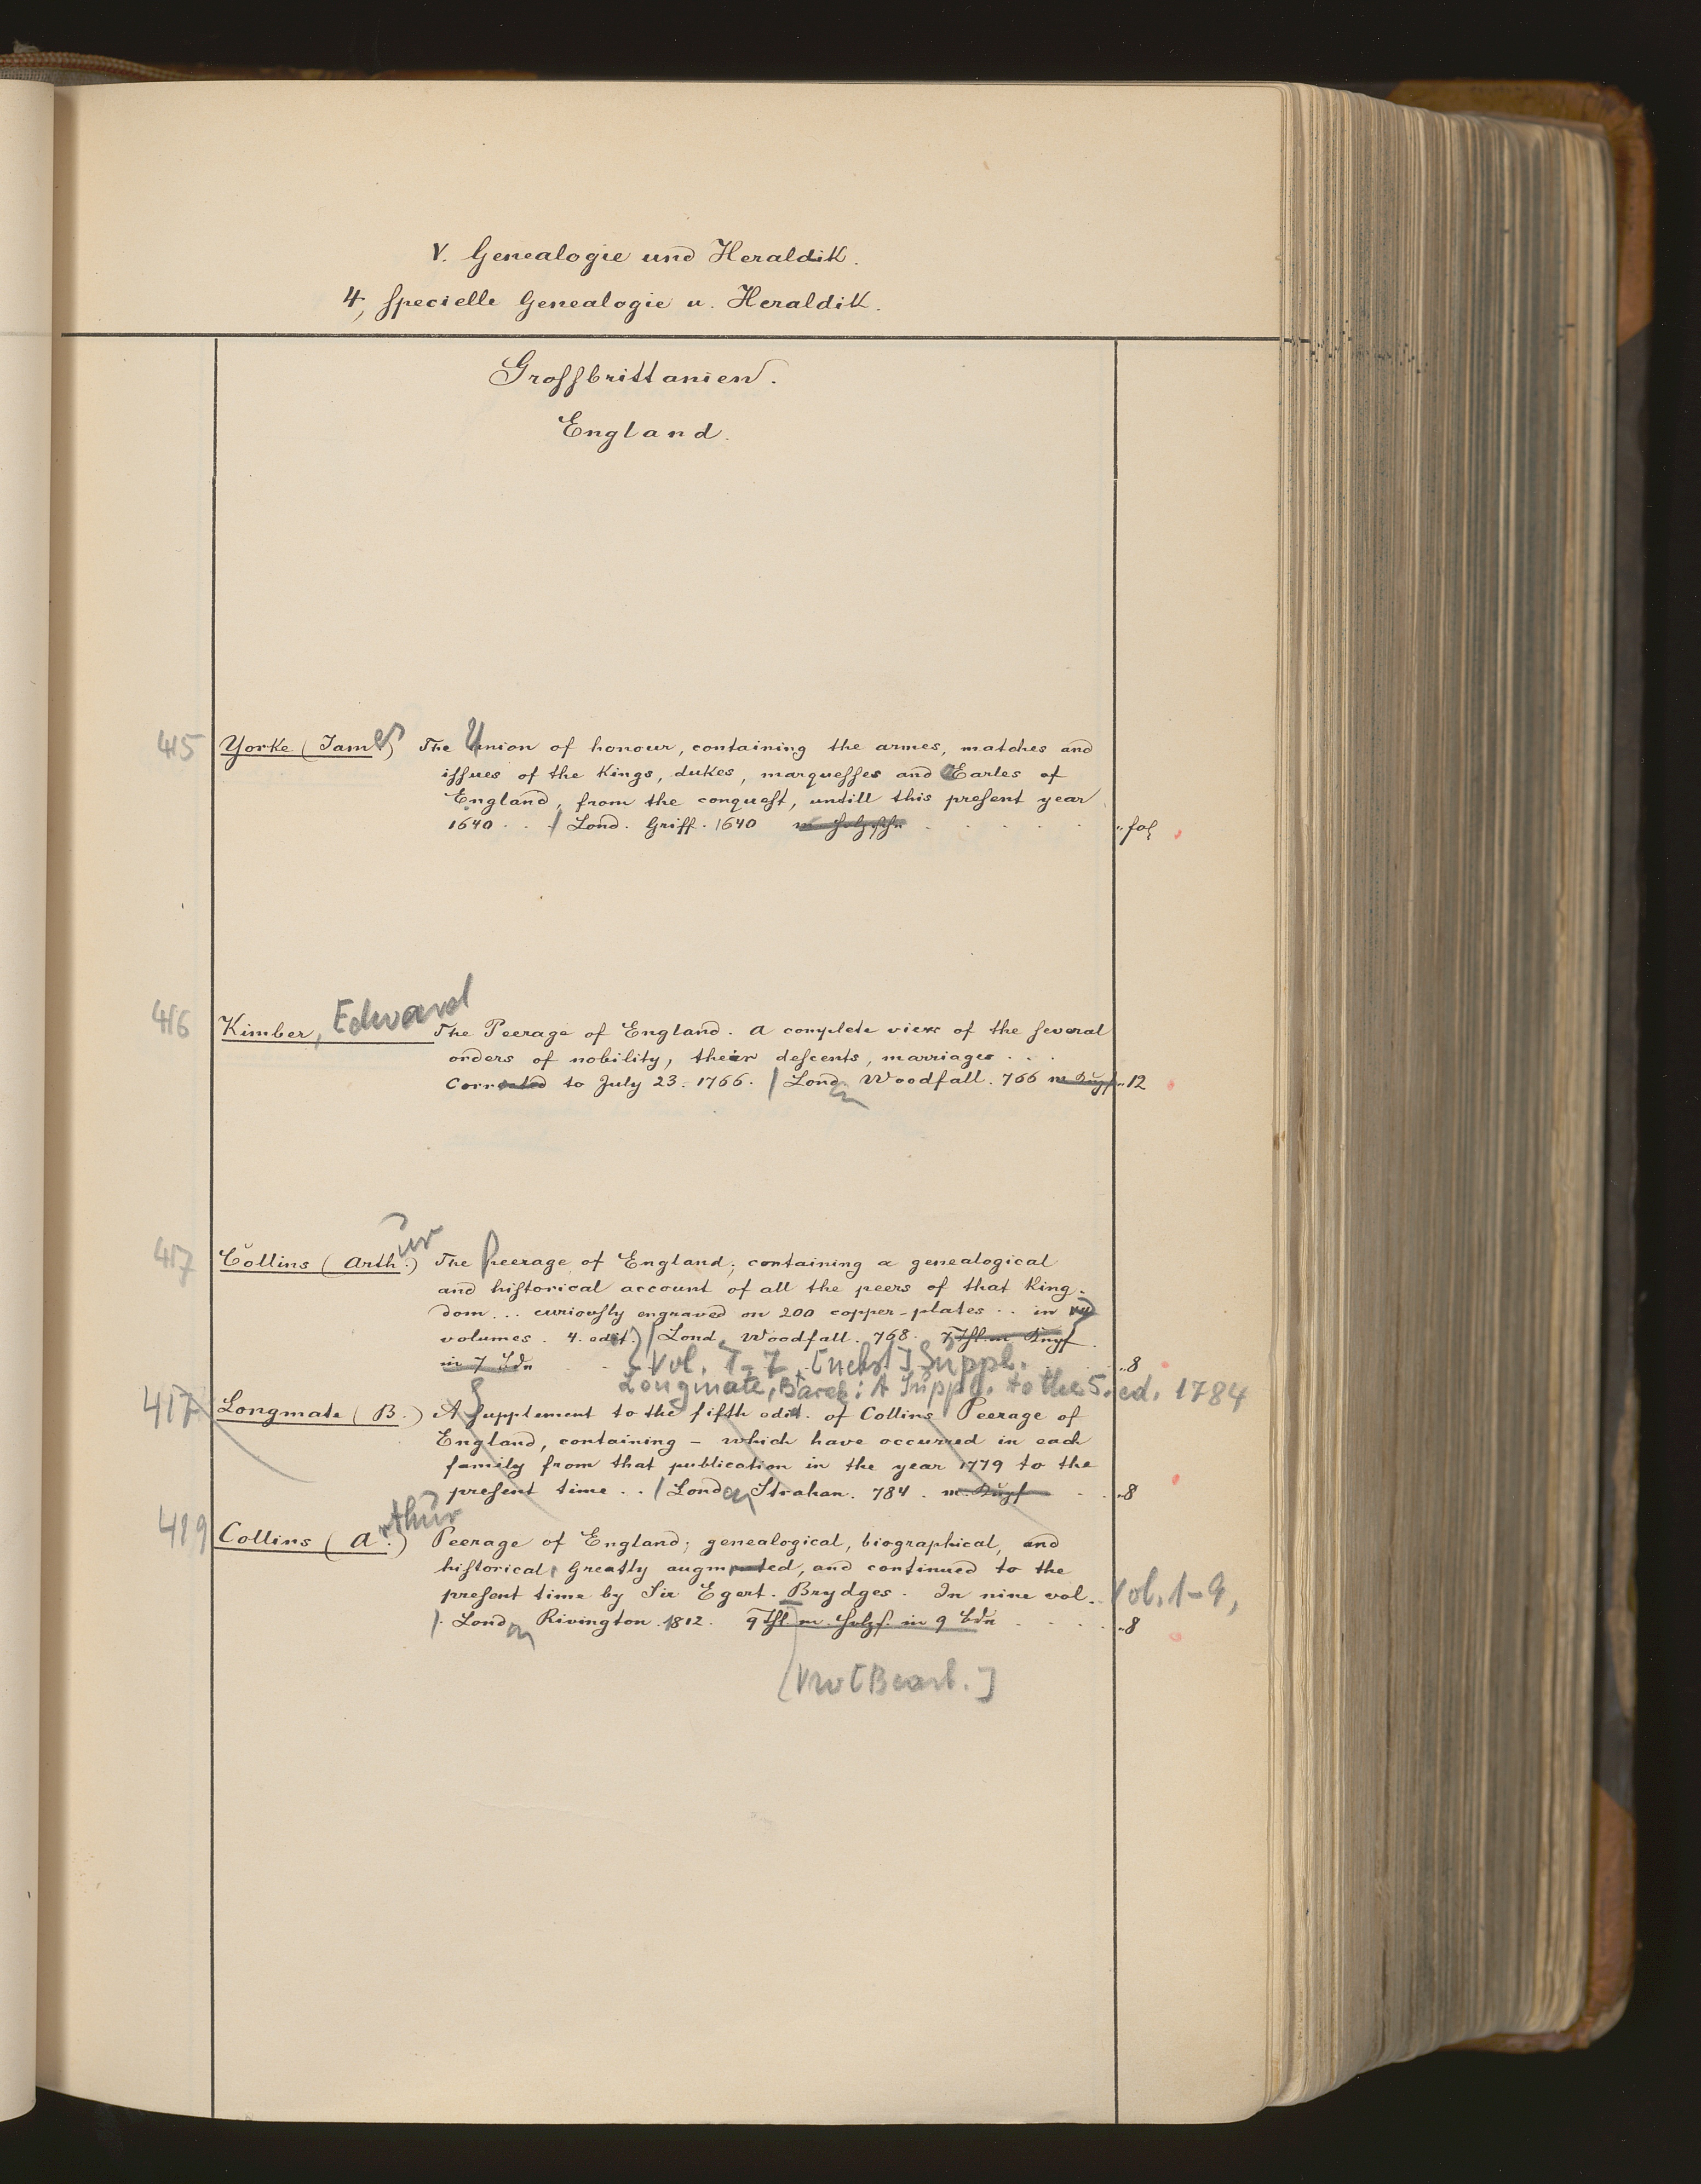 V. Genealogie und Heraldik.
4, Specielle Genealogie u. Heraldik.
Grossbrittanien.
England.
415 Yorke (James) The Union of honour, containing the armes, matches and
issues of the Kings, dukes, marquesses and Earles of
England, from the conquest, untill this present year
1640 . . / Lond. Griff. 1640 m Holzschn . . . . . fol
416 Kimber, Edward The Peerage of England. A complete view of the several
orders of nobility, their descents, marriages . . .
Corrected to July 23. 1766. / London Woodfall. 766 m. Kupf. 12
417 Collins (Arthur) The Peerage of England; containing a genealogical
and historical account of all the peers of that King-
dom . . . curiously engraved on 200 copper-plates . . in
volumes. 4. edit.) / Lond. Woodfall. 768. 7 Thl. m Kupf.
in 7 Bdn . . . 8
Vol. 1-7 [nebst] Suppl.
Longmate, Barak: A Suppl. to the 5. ed. 1784
417 Longmate (B.) A Supplement to the fifth edit. of Collins Peerage of
England, containing – which have occurred in each
family from that publication in the year 1779 to the
present time . . / London Strahan. 784. m. Kupf . . 8
419 Collins (Arthur) Peerage of England; genealogical, biographical, and
historical, Greatly augmented, and continued to the
present time by Sir Egert. Brydges. In nine vol. Vol. 1-9,
/. London Rivington. 1812. 9 Thl. m. Holzs. in 9 Bdn . . . . 8
[Bearb.]